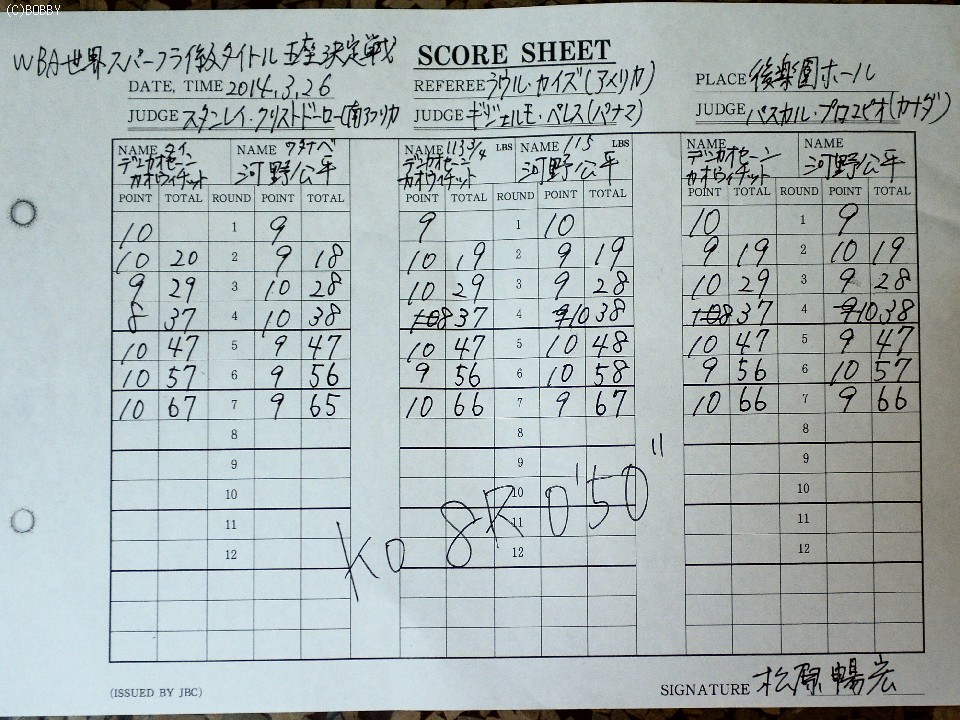 (C)BOBBY
WBA世界スーパーフライ級タイトル王座決定戦
SCORE SHEET
DATE, TIME 2014.3.26
REFEREE ラウル・カイズ(アメリカ)
PLACE 後楽園ホール
JUDGE スタンレイ・クリストドーロー(南アフリカ
JUDGE ギジェルモ・ペレス(パナマ)
JUDGE パスカル・プロコピオ(カナダ)
NAME タイ NAME ワタナベ NAME 113 3/4 LBS NAME 115 LBS NAME NAME
デンカオセーン 河野公平 デンカオセーン 河野公平 デンカオセーン 河野公平
カオウィチット カオウィチット カオウィチット
POINT TOTAL ROUND POINT TOTAL POINT TOTAL ROUND POINT TOTAL POINT TOTAL ROUND POINT TOTAL
10 1 9 9 1 10 10 1 9
10 20 2 9 18 10 19 2 9 19 9 19 2 10 19
9 29 3 10 28 10 29 3 9 28 10 29 3 9 28
8 37 4 10 38 10 8 37 4 9 10 38 10 8 37 4 9 10 38
10 47 5 9 47 10 47 5 10 48 10 47 5 9 47
10 57 6 9 56 9 56 6 10 58 9 56 6 10 57
10 67 7 9 65 10 66 7 9 67 10 66 7 9 66
8 8 8
9 9 9
10 10 10
11 11 11
12 12 12
KO 8R 0'50"
(ISSUED BY JBC)
SIGNATURE 松原暢宏